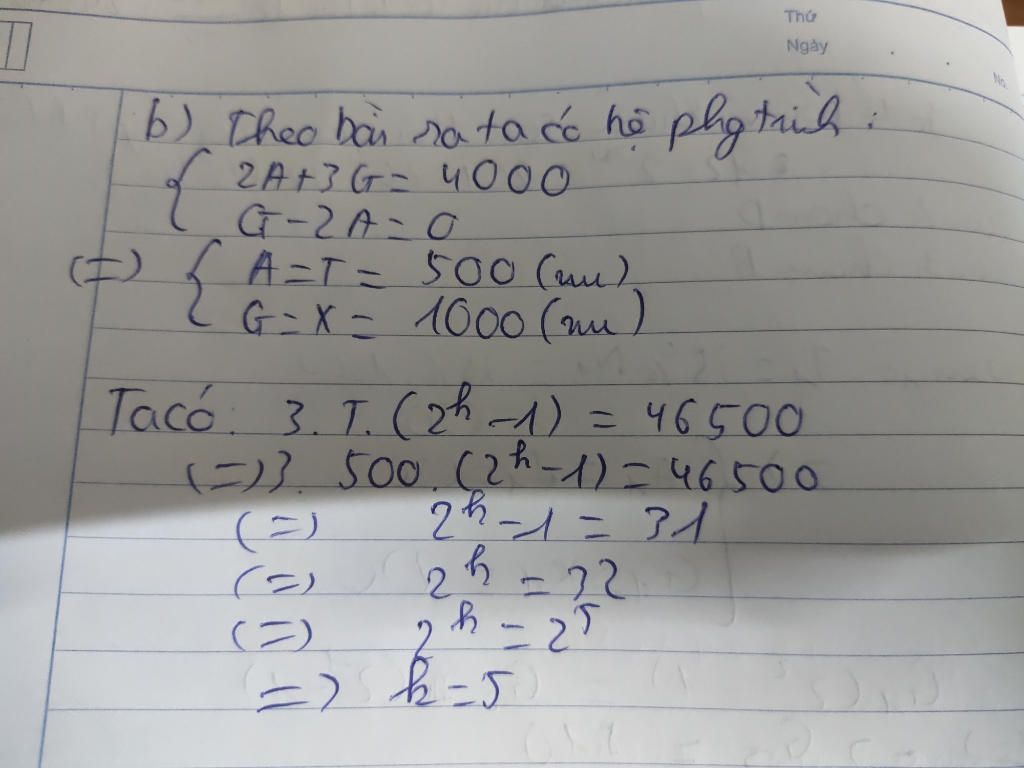 Thứ
Ngày
No.
b) Theo bài ra ta có hệ phg trình :
{ 2A+3G = 4000
G-2A = 0
(=) { A=T= 500 (nu)
G=X= 1000 (nu)
Ta có: 3. T. (2^k -1) = 46500
(=) 3. 500. (2^k -1) = 46500
(=) 2^k -1 = 31
(=) 2^k = 32
(=) 2^k = 2^5
=) k = 5